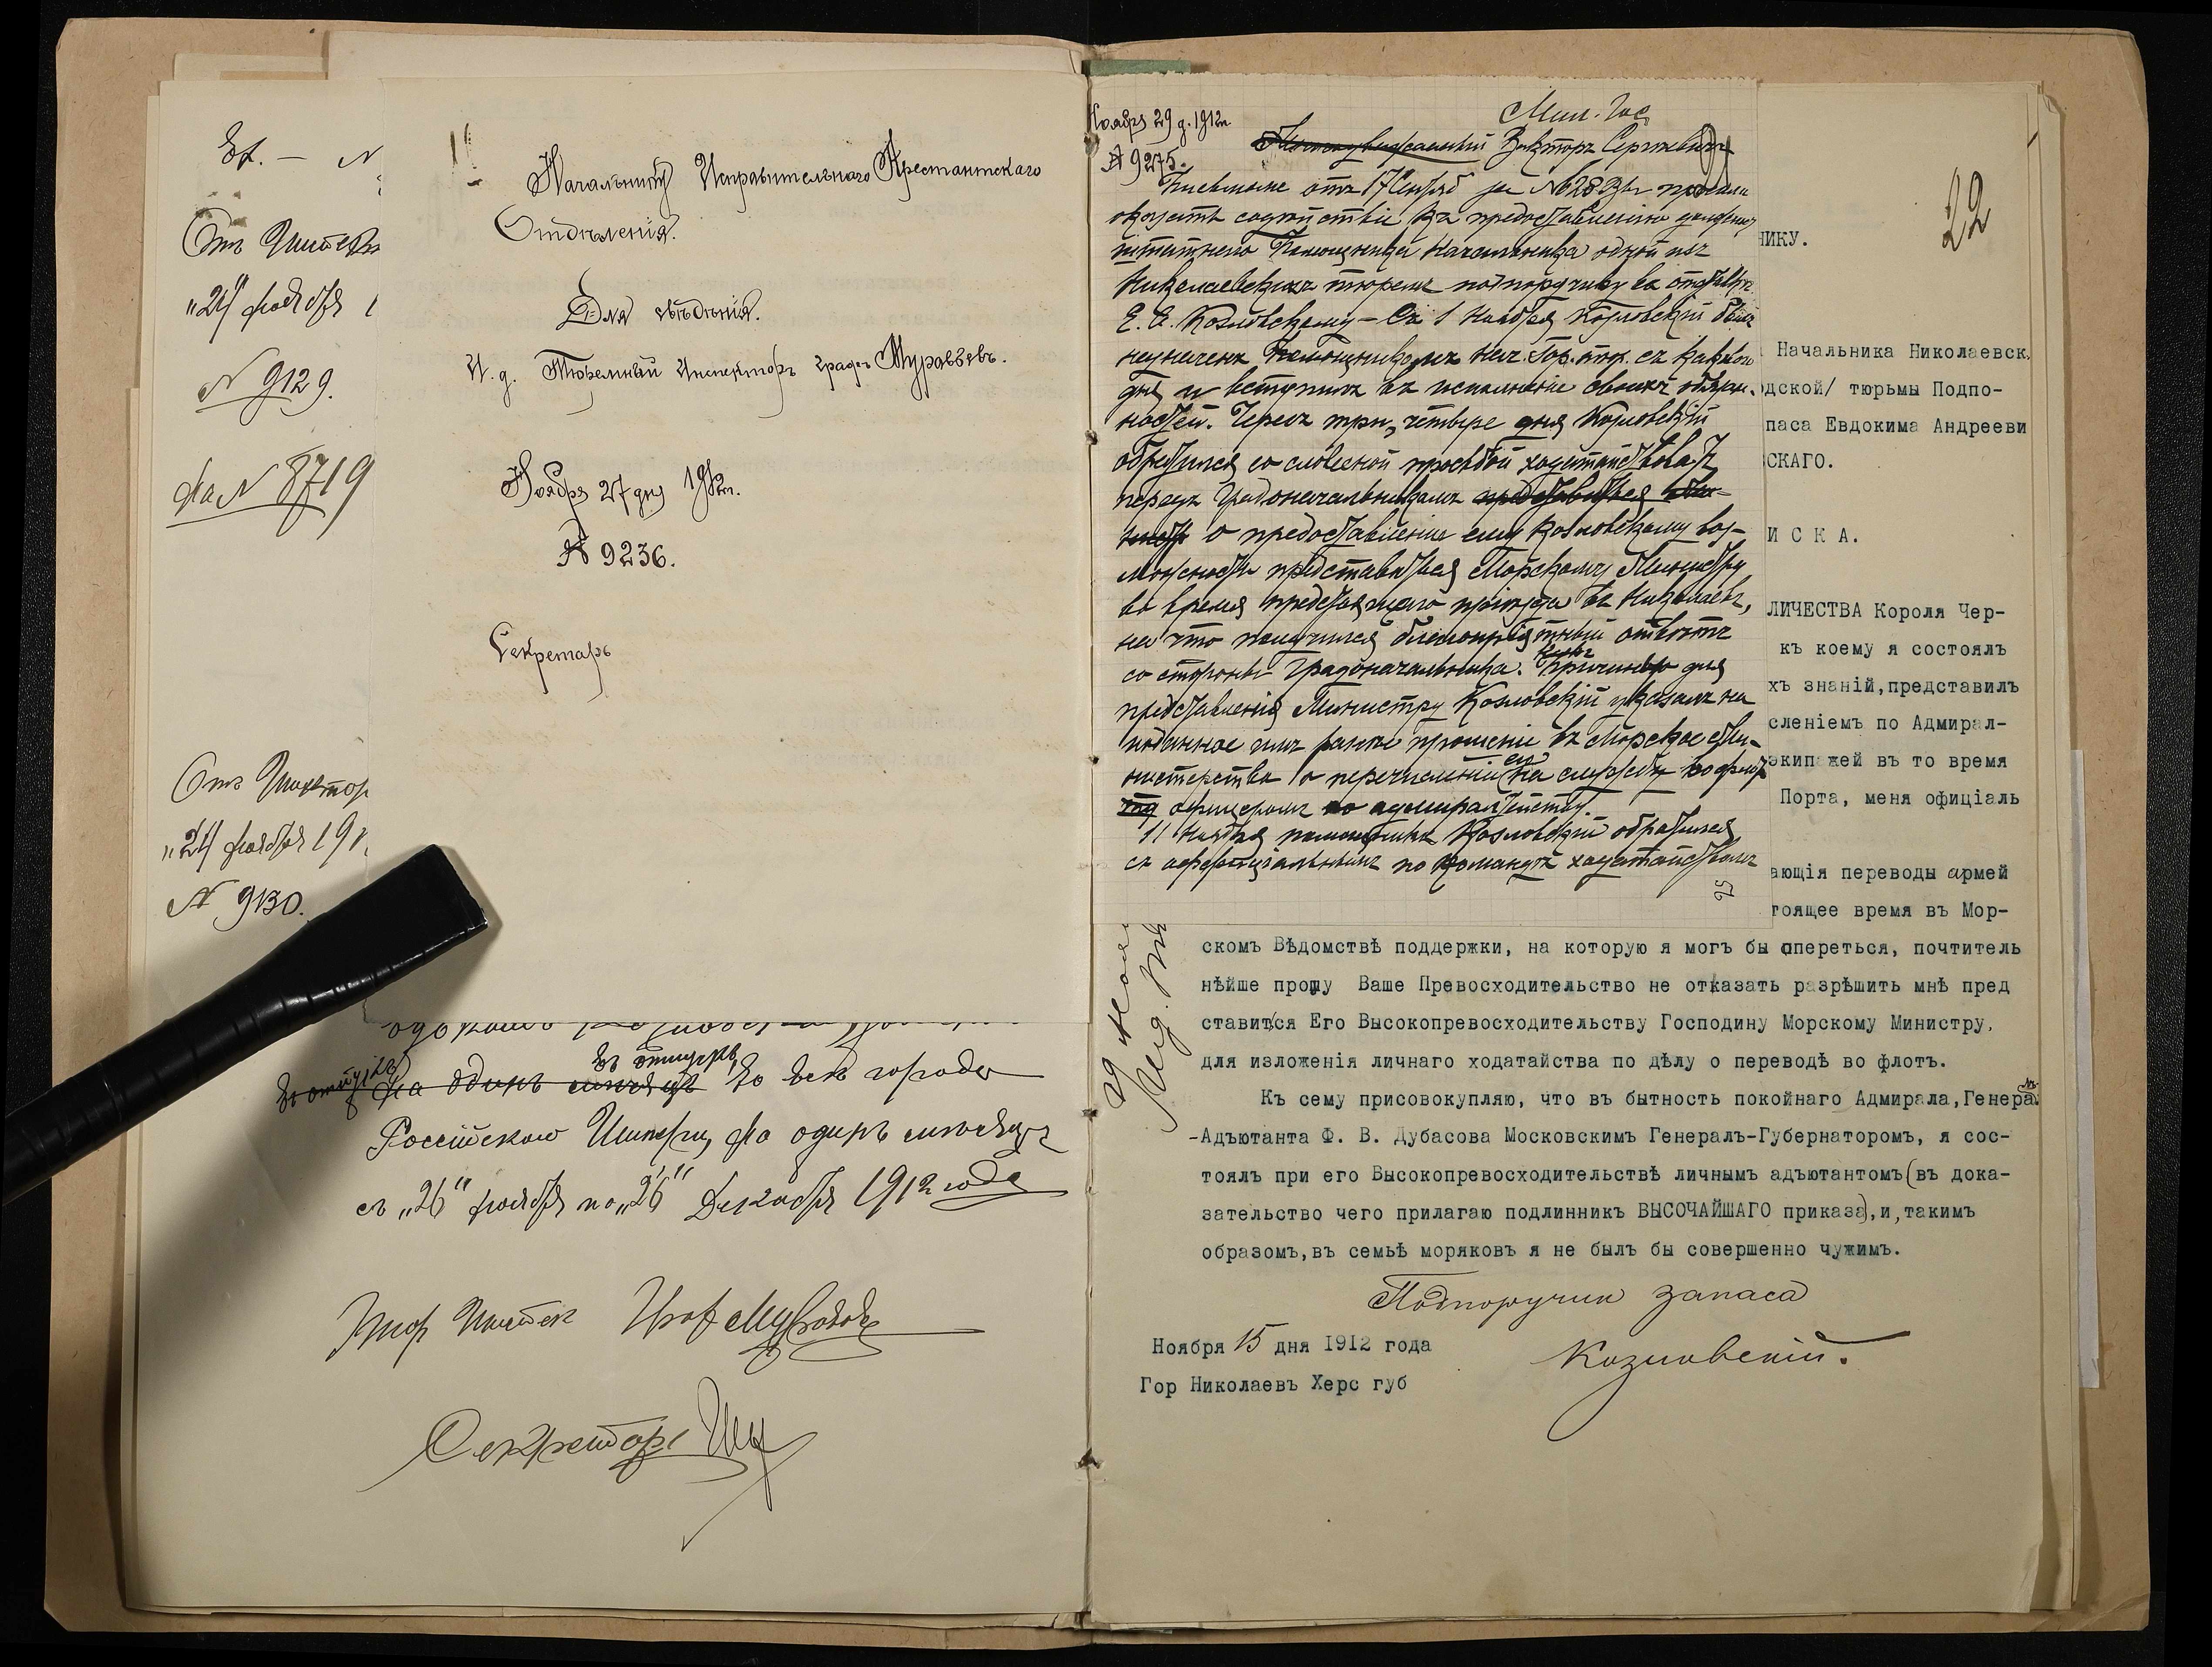 От Инспек
"24" ноября 1
N 9129.
На N 8719
От Инспектор
"24 ноября 191
N 9130.
Начальнику Исправительнаго Арестантскаго
Отдѣленія.
Для свѣдѣнія.
И. д. Тюремный Инспекторъ графъ Муравьевъ.
Ноября 27 дня 1912 г.
№ 9236.
Секретарь
въ отпускъ
въ отпускъ на одинъ мѣсяцъ во всѣ города
Россійской Импери, на одинъ мѣсяцъ
съ "26" ноября по "26" Декабря 1912 года
Граф Муравьев
Секретарь
Ноября 29 д. 1912 г.
№ 9275.
Мил. Гос.
Викторъ Сергѣевичъ
Письмомъ отъ 17 за № просили
оказать содѣйствіе къ предоставленію
штатнаго Помощника Начальника одной изъ
Николаевскихъ тюремъ подпоручику въ отставкѣ
Е. А. Козловскому – Съ 1 Ноября Козловскій былъ
назначенъ Помощникомъ Нач. Гор. тюр. съ какого
дня и вступилъ въ исполненіе своихъ обязан-
ностей. Черезъ три, четыре дня Козловскій
обратился со словесной просьбой ходатайствовать
передъ Градоначальникомъ представиться
о предоставленіи ему Козловскому воз-
можности представиться Морскому Министру
во время предстоящаго пріѣзда въ Николаевъ,
на что получился благопріятный отвѣтъ
со стороны Градоначальника. Причиною для
представленія Министру Козловскій указалъ на
поданное имъ ранѣе прошеніе въ Морское Ми-
нистерство о перечисленіи его на службу во флотъ
офицеромъ по адмиралтейству.
11 Ноября помощникъ Козловскій обратился
съ оффиціальнымъ по командѣ ходатайствомъ
22
НИКУ.
Начальника Николаевск.
дской/ тюрьмы Подпо-
паса Евдокима Андрееви
СКАГО.
И С К А.
ЛИЧЕСТВА Короля Чер-
къ коему я состоялъ
хъ знаній,представилъ
сленіемъ по Адмирал-
экипажей въ то время
Порта, меня офиціаль
ающія переводы армей
тоящее время въ Мор-
скомъ Вѣдомствѣ поддержки, на которую я могъ бы опереться, почтитель
нѣйше прошу Ваше Превосходительство не отказать разрѣшить мнѣ пред
ставится Его Высокопревосходительству Господину Морскому Министру,
для изложенія личнаго ходатайства по дѣлу о переводѣ во флотъ.
Къ сему присовокупляю, что въ бытность покойнаго Адмирала,Генералъ
-Адъютанта Ф. В. Дубасова Московскимъ Генералъ-Губернаторомъ, я сос-
тоялъ при его Высокопревосходительствѣ личнымъ адъютантомъ(въ дока-
зательство чего прилагаю подлинникъ ВЫСОЧАЙШАГО приказа),и,такимъ
образомъ,въ семьѣ моряковъ я не былъ бы совершенно чужимъ.
Подпоручик запаса
Козловскій.
Ноября 15 дня 1912 года
Гор Николаевъ Херс губ